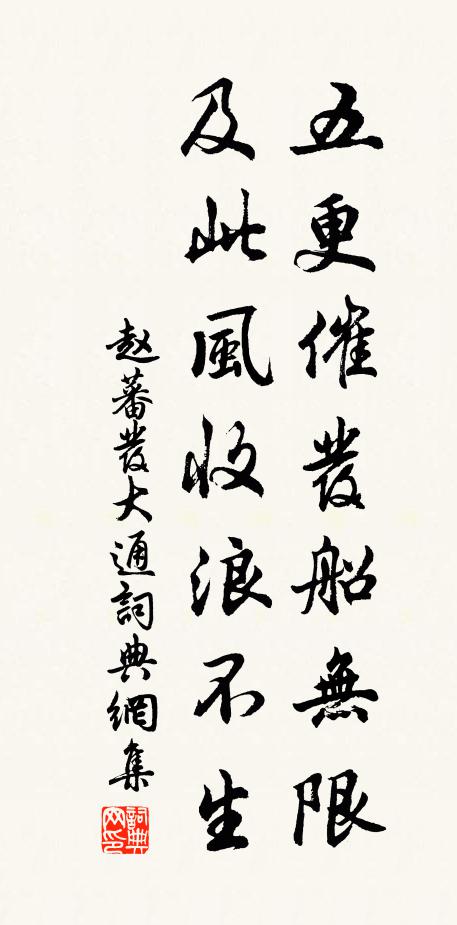 五更催發船無限
及此風收浪不生
赵蕃發大通詞典網集
詞典網印